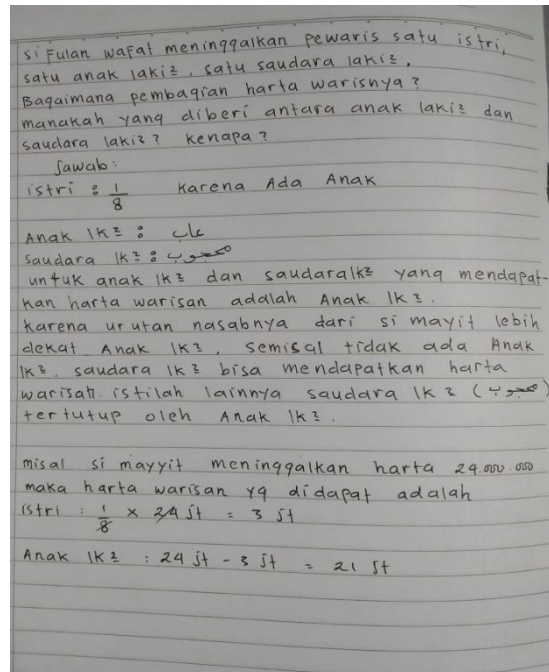 si Fulan wafat meninggalkan pewaris satu istri,
satu anak laki2, satu saudara laki2.
Bagaimana pembagian harta warisnya?
manakah yang diberi antara anak laki2 dan
saudara laki2? kenapa?
Jawab:
istri : 1/8 Karena Ada Anak
Anak lk2 :
Saudara lk2 : محجوب
untuk anak lk2 dan saudara lk2 yang mendapat-
kan harta warisan adalah Anak lk2.
karena urutan nasabnya dari si mayit lebih
dekat Anak lk2, semisal tidak ada Anak
lk2, saudara lk2 bisa mendapatkan harta
warisan. istilah lainnya saudara lk2 (محجوب)
tertutup oleh Anak lk2.
misal si mayyit meninggalkan harta 24.000.000
maka harta warisan yg didapat adalah
istri : 1/8 x 24 jt = 3 jt
Anak lk2 : 24 jt - 3 jt = 21 jt